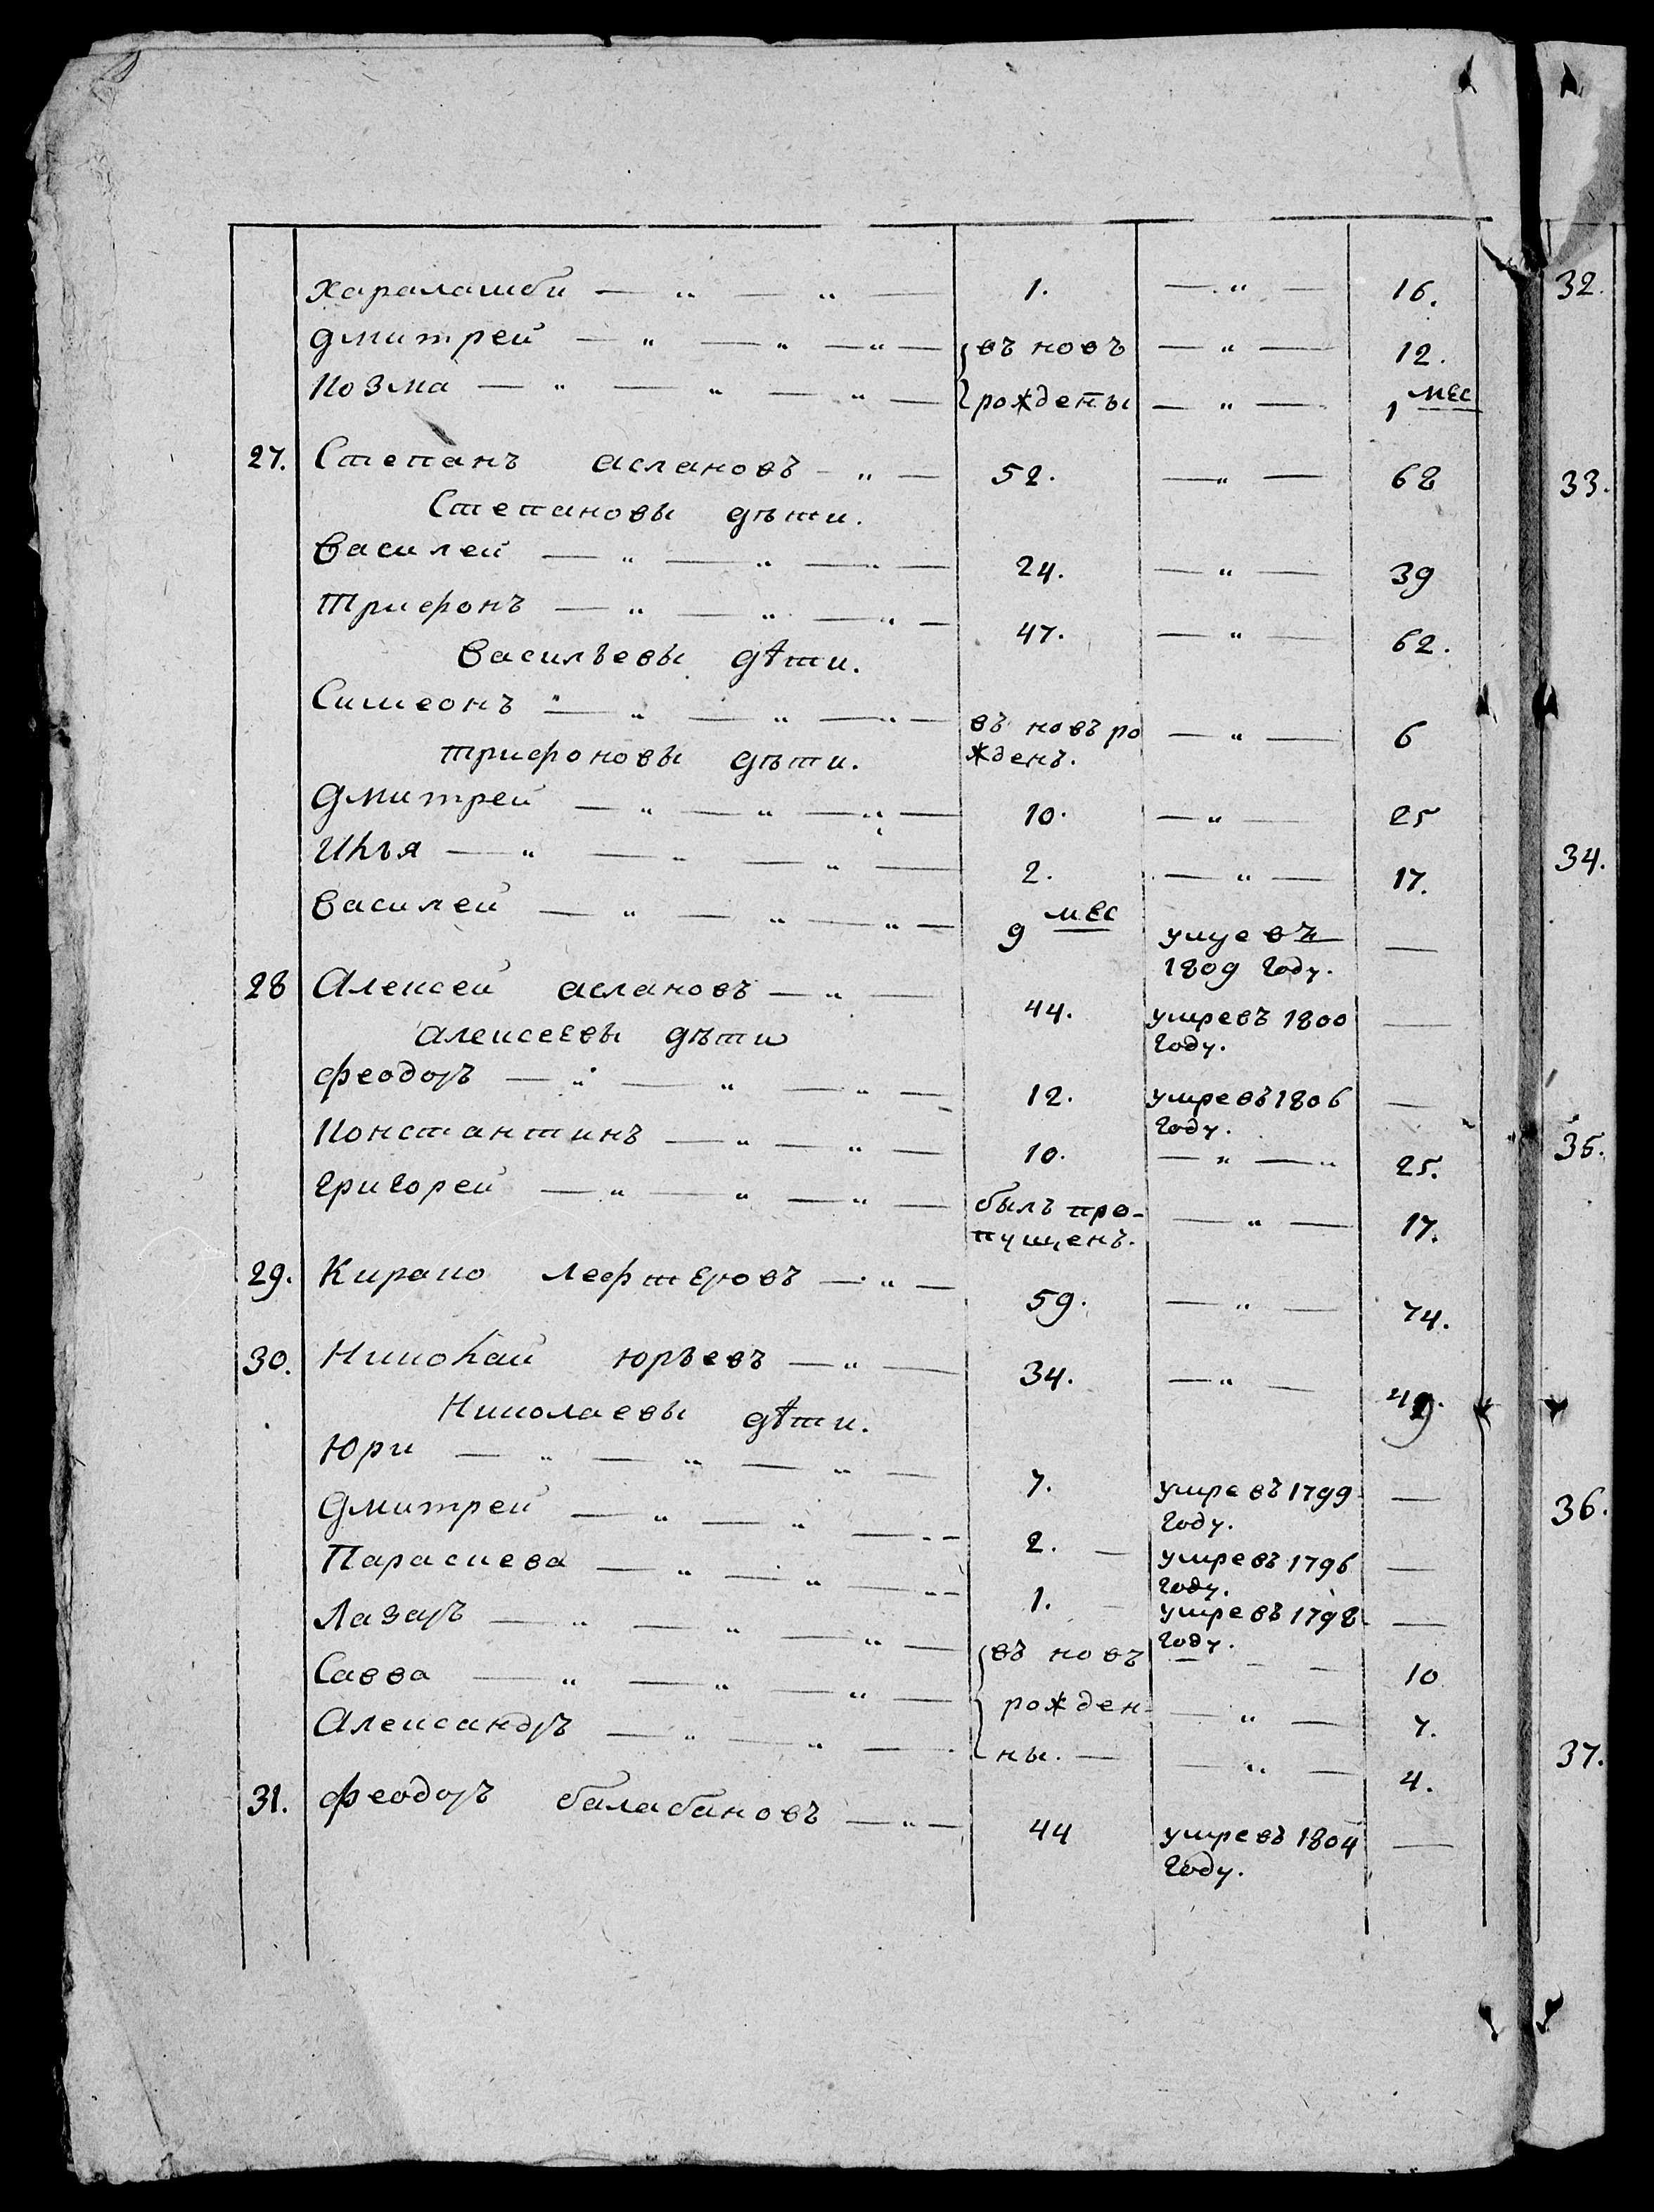 Харалашби — „ — „ — 1. — „ — 16.
Дмитрей — „ — „ — „ — въ новъ — „ — 12.
Козма — „ — „ — „ — рождены — „ — 1 мес
27. Степанъ аслановъ — „ — 52. — „ — 68
Степановы дѣти.
Василей — „ — „ — „ — 24. — „ — 39
Трифонъ — „ — „ — „ — 47. — „ — 62.
Васильевы дѣти.
Симеонъ — „ — „ — „ — въ новъ ро — „ — 6
жденъ.
трифоновы дѣти.
Дмитрей — „ — „ — „ — 10. — „ — 25
Илья — „ — „ — „ — 2. — „ — 17.
Василей — „ — „ — „ — 9 мес въ —
1809 году.
28 Алексей аслановъ — „ — 44. умре въ 1800 —
году.
алексеевы дѣти
феодоръ — „ — „ — „ — 12. умре въ 1806 —
году.
Константинъ — „ — „ — 10. — „ — „ 25.
григорей — „ — „ — „ — былъ про- — „ — 17.
пущенъ.
29. Кирако лефтеровъ — „ — 59. — „ — 74.
30. Николай юрьевъ — „ — 34. — „ — 49.
Николаевы дѣти.
Юри — „ — „ — „ — 7. умре въ 1799 —
году.
Дмитрей — „ — „ — 2. — умре въ 1796 —
году.
Параскева — „ — „ — 1. — умре въ 1798 —
году.
Лазарь — „ — „ — „ — въ новъ — — — 10
Савва — „ — „ — „ — рожден- — „ — 7.
Александръ — „ — „ — ны. — — „ — 4.
31. феодоръ балабановъ — „ — 44 умре въ 1804 —
году.
32.
33.
34.
35.
36.
37.